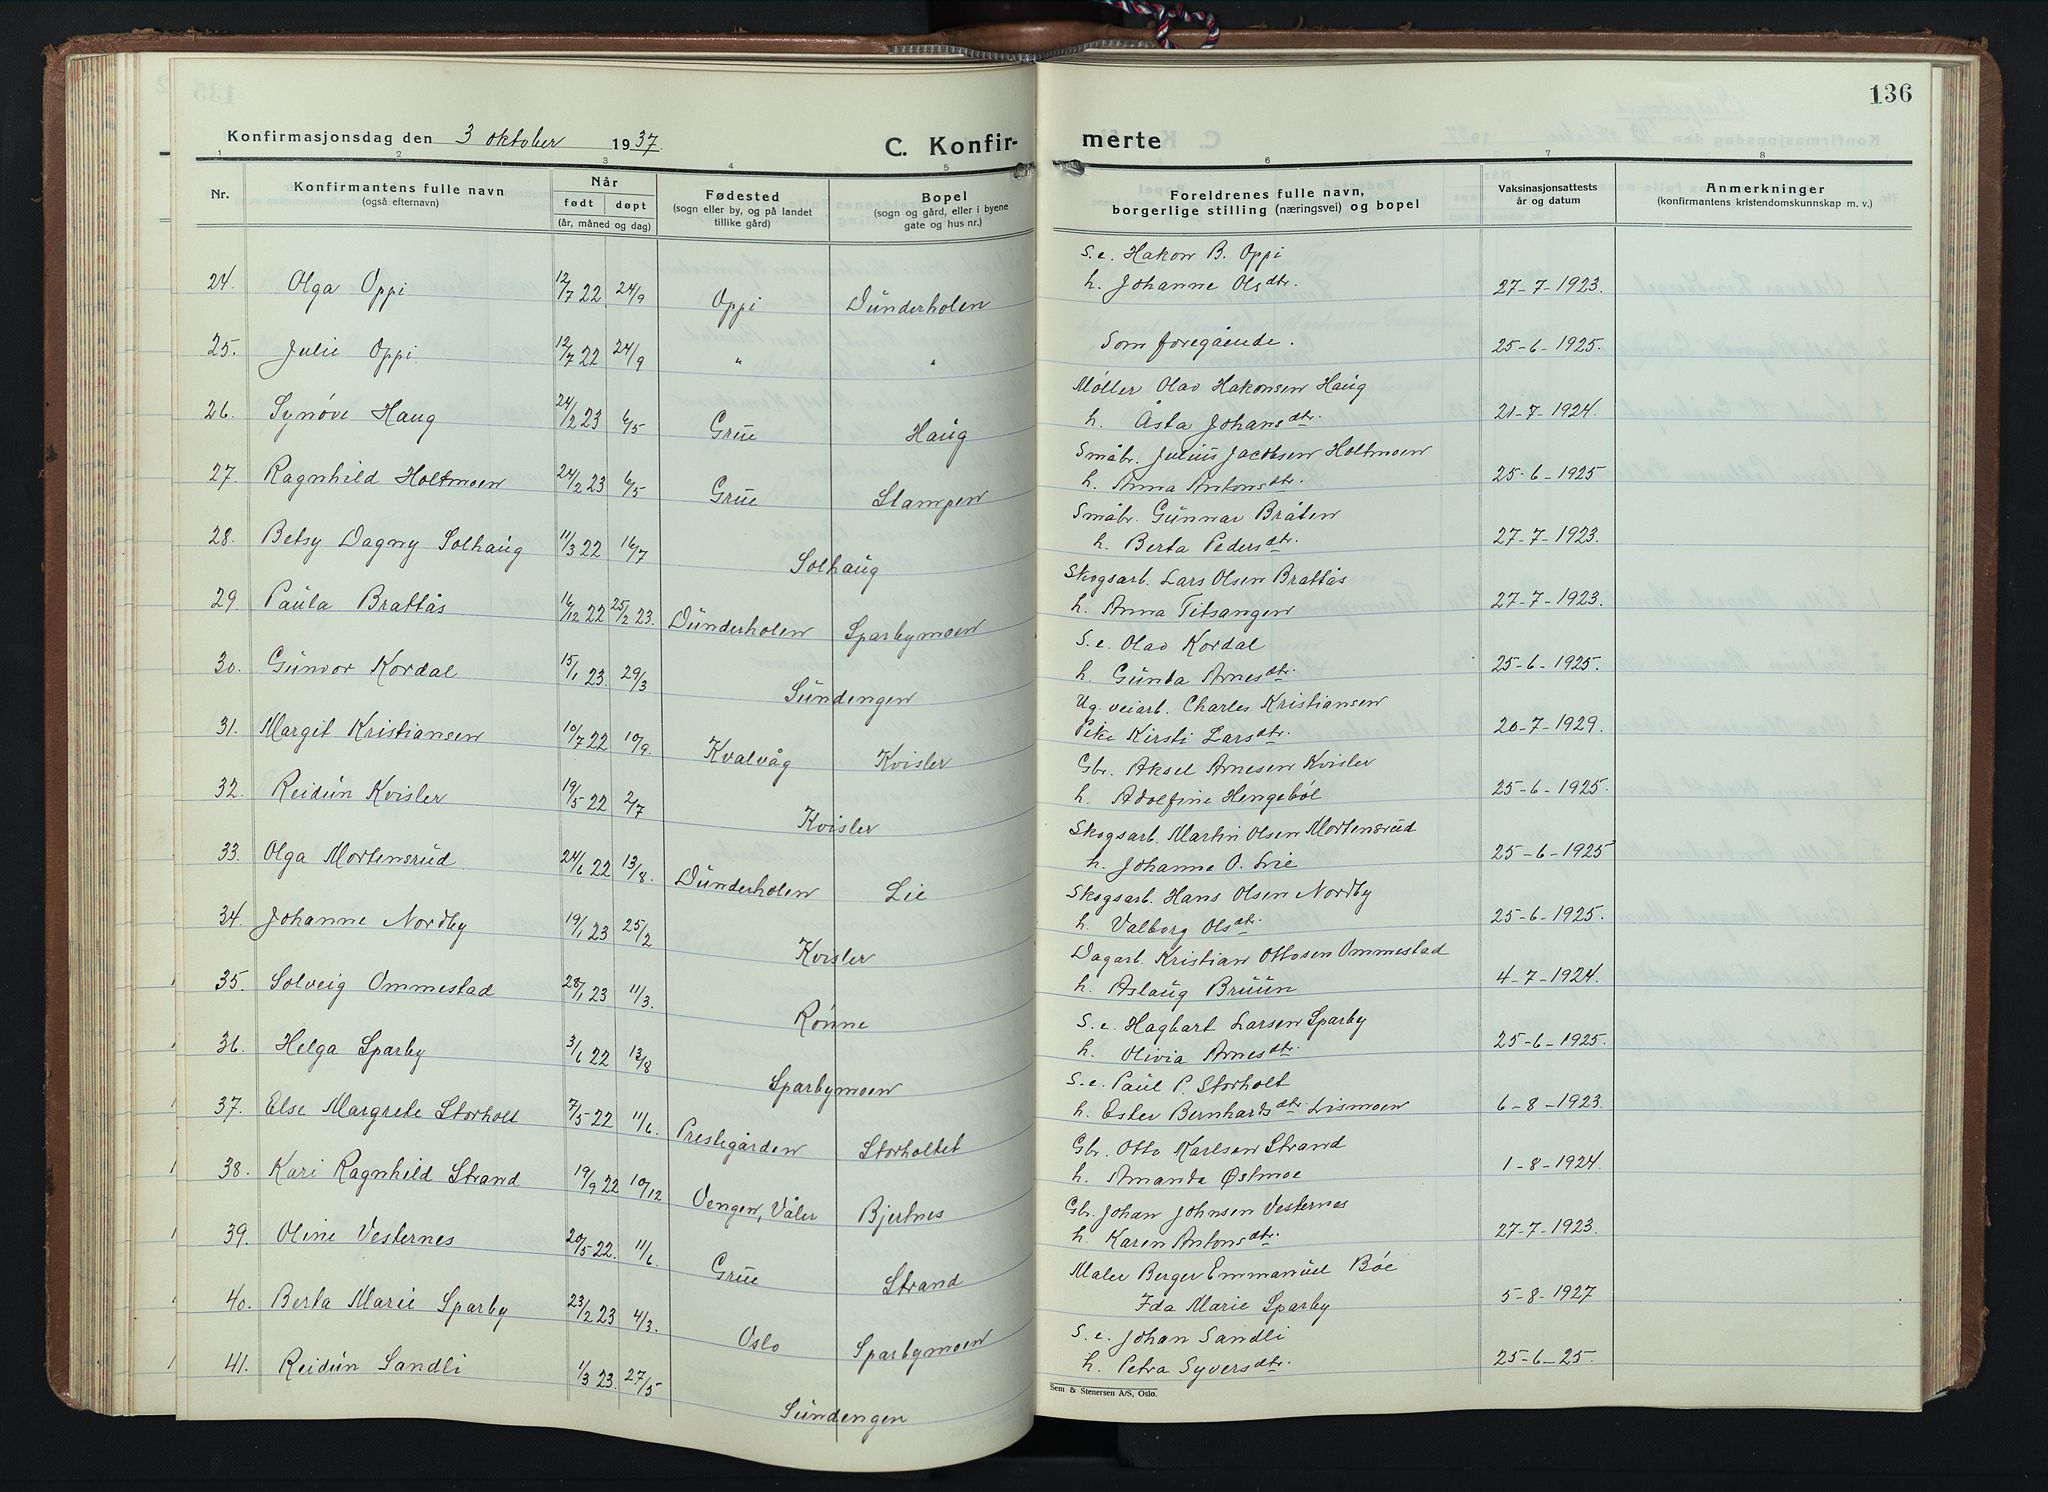 136
Konfirmasjonsdag den 3 oktober 1937.
C. Konfir-
merte
1 2 3 4 5 6 7 8
Nr.
Konfirmantens fulle navn
(også efternavn)
Når
født døpt
(år, måned og dag)
Fødested
(sogn eller by, og på landet
tillike gård)
Bopel
(sogn og gård, eller i byene
gate og hus nr.)
Foreldrenes fulle navn,
borgerlige stilling (næringsvei) og bopel
Vaksinasjonsattests
år og datum
Anmerkninger
(konfirmantens kristendomskunnskap m. v.)
24. Olga Oppi 12/7 22 24/9 Oppi Dunderholen
S.e. Hakon B. Oppi
h. Johanne Olsdtr. 27-7-1923.
25. Julie Oppi 12/7 22 24/9 " "
Som foregående. 25-6-1925.
26. Synøve Haug 24/2 23 6/5 Grue Haug
Møller Olav Hakonsen Haug
h. Åsta Johansdtr. 21-7-1924.
27. Ragnhild Holtmoen 24/2 23 6/5 Grue Stampen
Småbr. Julius Jacobsen Holtmoen
h. Anna Antonsdtr. 25-6-1925
28. Betsy Dagny Solhaug 11/3 22 16/7 Solhaug
Småbr. Gunnar Bråten
h. Berta Pedersdtr. 27-7-1923.
29. Paula Brattås 16/12 22 25/2 23. Dunderholen Sparbymoen
Skogsarb. Lars Olsen Brattås
h. Anna Titsangen 27-7-1923.
30. Gunvor Kordal 15/1 23. 29/3 Sundengen
S.e. Olav Kordal
h. Gunda Arnesdtr. 25-6-1925.
31. Margit Kristiansen 10/7 22 10/9. Kvalvåg Kvisler
Ug. veiarb. Charles Kristiansen
Pike Kirsti Larsdtr. 20-7-1929.
32. Reidun Kvisler 19/5 22 2/7 Kvisler
Gbr. Aksel Arnesen Kvisler
h. Adolfine Hengebøl 25-6-1925.
33. Olga Mortensrud 24/6 22 13/8. Dunderholen Lie
Skogsarb. Martin Olsen Mortensrud
h. Johanne O. Lie 25-6-1925
34. Johanne Nordby 19/1 23 25/2 Kvisler
Skogsarb. Hans Olsen Nordby
h. Valborg Olsdtr. 25-6-1925.
35. Solveig Ommestad 28/1 23 11/3. Rønne
Dagarb. Kristian Ottosen Ommestad
h. Aslaug Bruun 4-7-1924.
36. Helga Sparby 3/6 22 13/8 Sparbymoen
S.e. Hagbart Larsen Sparby
h. Olivia Arnesdtr. 25-6-1925.
37. Else Margrete Storholt 7/5 22 11/6. Prestegården Storholtet
S.e. Paul P. Storholt
h. Ester Bernhardsdtr. Lismoen 6-8-1923.
38. Kari Ragnhild Strand 19/9 22 10/12 Vengen, Våler Bjertnes
Gbr. Otto Karlsen Strand
h. Amanda Østmoe 1-8-1924.
39. Oline Vesternes 20/5 22. 11/6. Grue Strand
Gbr. Johan Johnsen Vesternes
h. Karen Antonsdtr. 27-7-1923.
40. Berta Marie Sparby 23/2 23 4/3. Oslo Sparbymoen
Maler Berger Emmanuel Bøe
Ida Marie Sparby 5-8-1927
41. Reidun Sandli 1/3 23. 27/5 Sundengen
S.e. Johan Sandli
h. Petra Syversdtr. 25-6-25.
Sem & Stenersen A/S, Oslo.